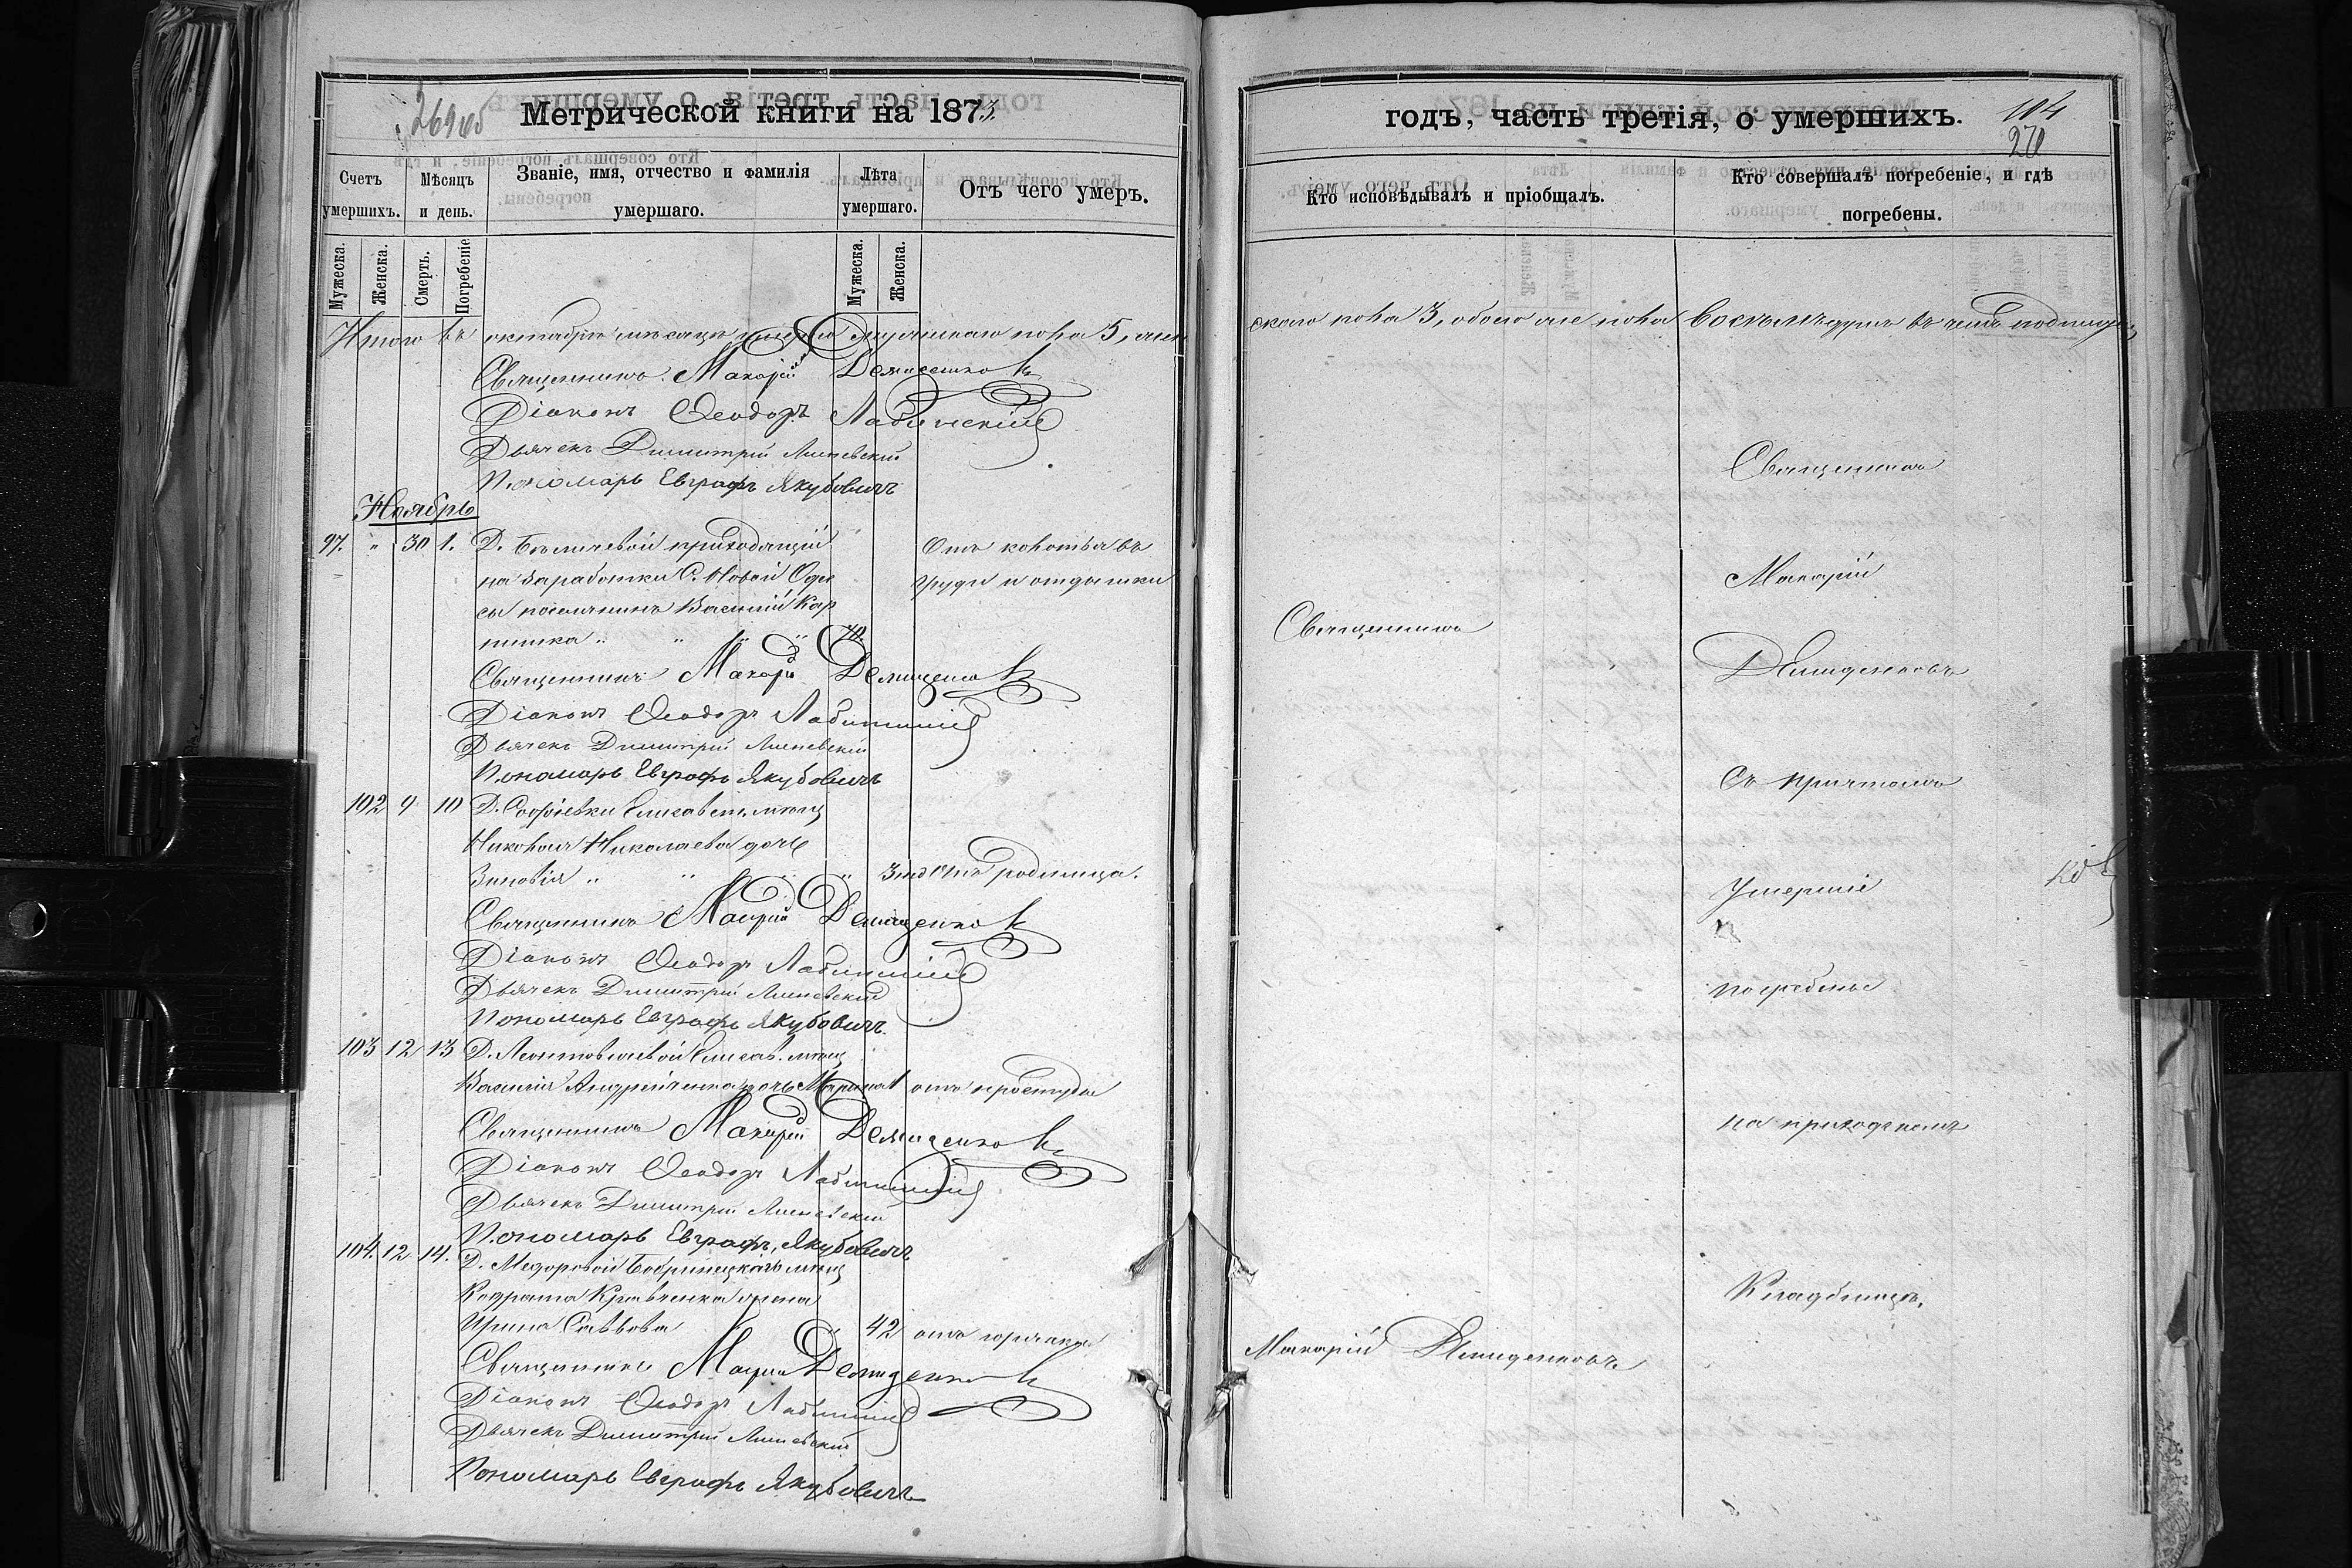 269 об
Метрической книги на 1873.
Счетъ умершихъ.
Мѣсяцъ и день.
Званіе, имя, отчество и фамилія умершаго.
Лѣта умершаго.
Отъ чего умеръ.
Мужеска.
Женска.
Смерть.
Погребеніе
Мужеска.
Женска.
Итого въ октябрѣ мѣсяцѣ умерло мужескаго пола 5, жен
Священникъ Макарій Демиденко
Діаконъ Ѳеодоръ Лабинскій
Дьячекъ Димитрій
Пономарь Евграфъ Якубовичъ
Ноябрь
97. " 30 1. Д. приходящій Отъ колотья въ
на заработки С. Новой Оде груди и отдышки
сы поселянинъ Василій Кар
пенка " " " " 70.
Священникъ Макарій Демиденко
Діаконъ Ѳеодоръ Лабинскій
Дьячекъ Димитрій
Пономарь Евграфъ Якубовичъ
102 9 10 Д. Софіевки Елисавет. мѣщ
Николая Николаева дочь
Зиновія " " " " 3 отъ родимца.
Священникъ Макарій Демиденко
Діаконъ Ѳеодоръ Лабинскій
Дьячекъ Димитрій
Пономарь Евграфъ Якубовичъ
103 12 13 Д. Елисав. мѣщ
Василія Андрейченка дочь Марина 1 отъ простуды
Священникъ Макарій Демиденко
Діаконъ Ѳеодоръ Лабинскій
Дьячекъ Димитрій
Пономарь Евграфъ Якубовичъ
104. 12 14. Д. Бобринецкаго мѣщ
Кодрата Кравченка жена
Ирина Саввова " 42 отъ горячки
Священникъ Макарій Демиденко
Діаконъ Ѳеодоръ Лабинскій
Дьячекъ Димитрій
Пономарь Евграфъ Якубовичъ
годъ, часть третія, о умершихъ.
104
270
Кто исповѣдывалъ и пріобщалъ.
Кто совершалъ погребеніе, и гдѣ погребены.
скаго пола 3, обоего же пола восемь душъ въ чемъ подпису
Священникъ
Макарій
Священникъ
Демиденковъ
Съ причтомъ
Умершіе
погребены
на приходскомъ
Кладбищѣ.
Макарій Демиденковъ